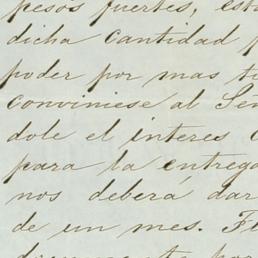 pesos fuertes, est
dicha cantidad p
poder por mas ti
conviniese al Señ
dole el interes
para la entrega
nos debera dar
de un mes. F